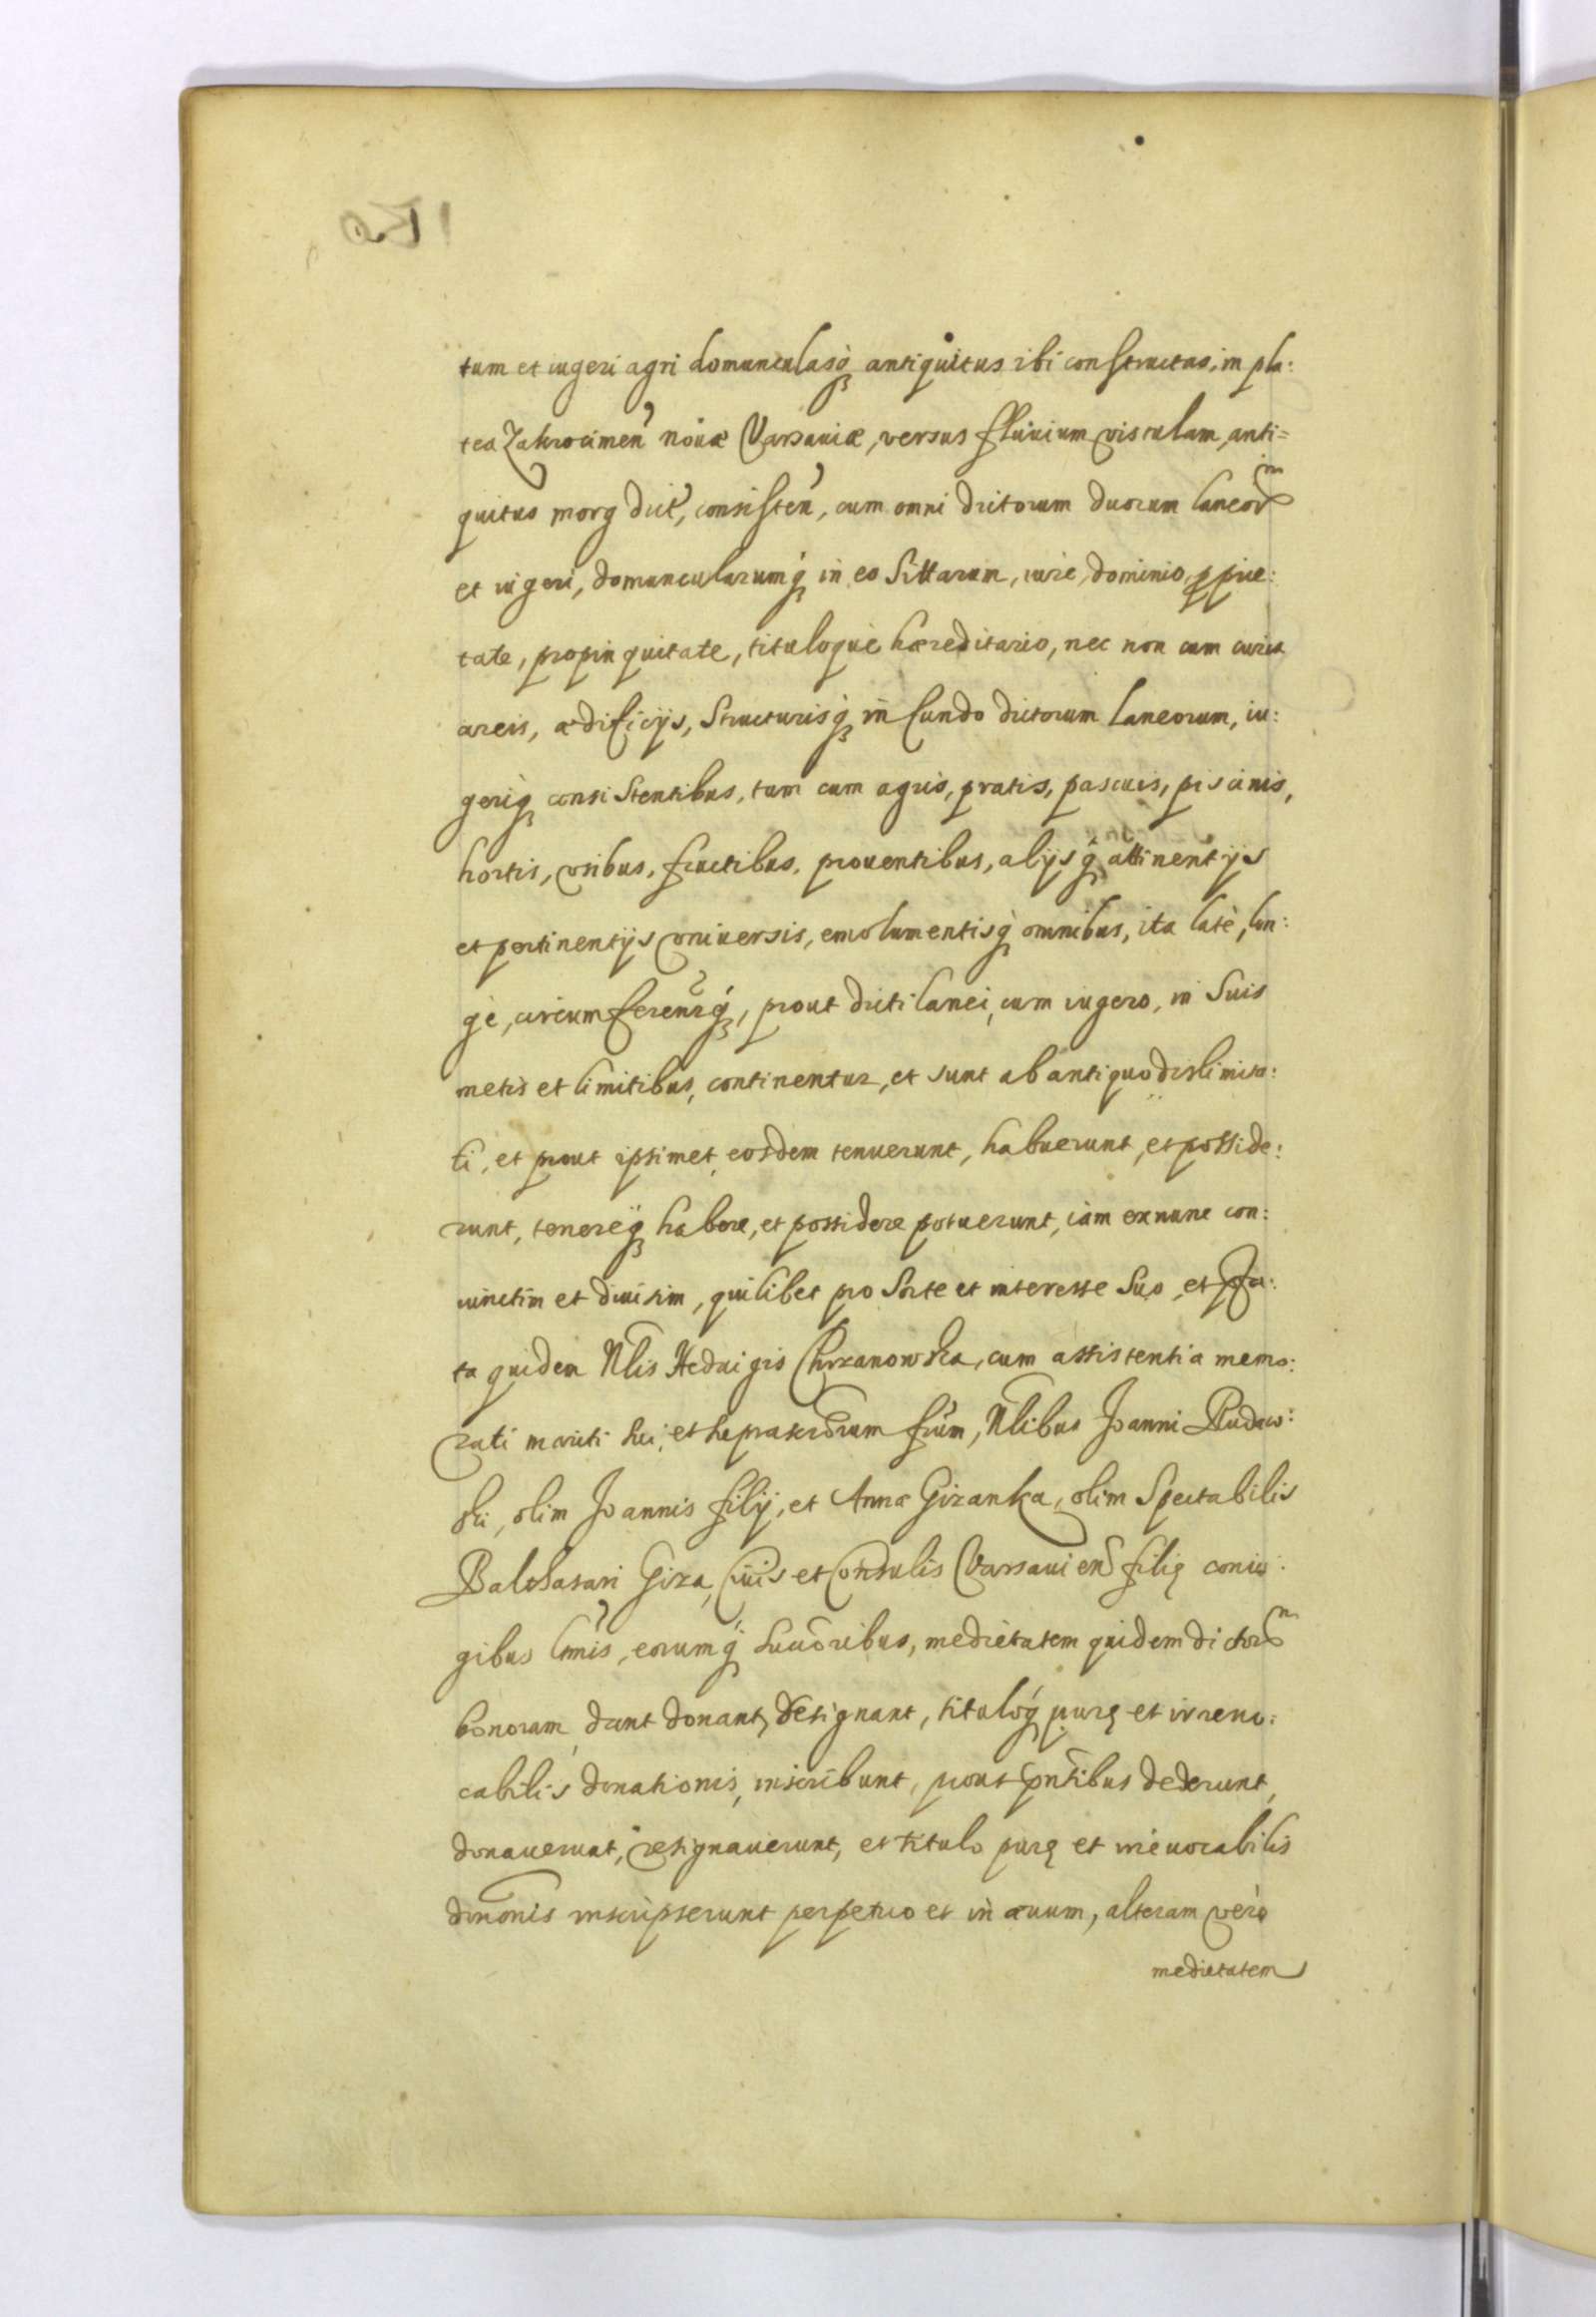 tum et iugeri agri domunculasq́ antiquitus ibi constructas, in pla:
tea Zakrocimen̄ nouæ Varsauiæ, versus fluuium vistulam, anti=
quitus morg dict̄, consisten̄, cum omni dictorum duorum laneorm
et iugeri, domuncularumq́ in eo sittarum, iure, dominio, pprie:
tate, propinquitate, tituloque hæreditario, nec non cum curia
areis, ædificijs, structurisq́ in fundo dictorum laneorum, iu:
geriq́ consistentibus, tum cum agris, pratis, pascuis, piscinis,
hortis, vsibus, fructibus, prouentibus, alijsq́ attinentijs
et pertinentijs vniuersis, emolumentisq́ omnibus, ita latè, lon:
gè, circumferen̄rq́, prout dicti lanei, cum iugero, in suis
metis et limitibus, continentur, et sunt ab antiquo dislimita:
ti, et prout ipsimet eosdem tenuerunt, habuerunt, et posside:
runt, tenereq́ habere, et possidere potuerunt, iam exnunc con:
iunctim et diuisim, quilibet pro sorte et interesse suo, et
ta quidem Nlis Heduigis Chrzanowska, cum assistentia memo:
rati mariti sui, et frūm, Nlibus Joanni Rudaw:
ski, olim Joannis filij, et Annæ Gizanka, olim Spectabilis
Balthasari Giza, Ciuis et Consulis Varsauien̄ filię coniu:
gibus lm̄is, eorumq́ succ̄oribus, medietatem quidem dictorm
bonorum dant donant, resignant, tituloq́ purę et irreuo:
cabilis donationis, inscribunt, prout pn̄tibus dederunt,
donauerunt, resignauerunt, et titulo purę et irreuocabilis
don̄onis inscripserunt perpetuo et in æuum, alteram verò
medietatem